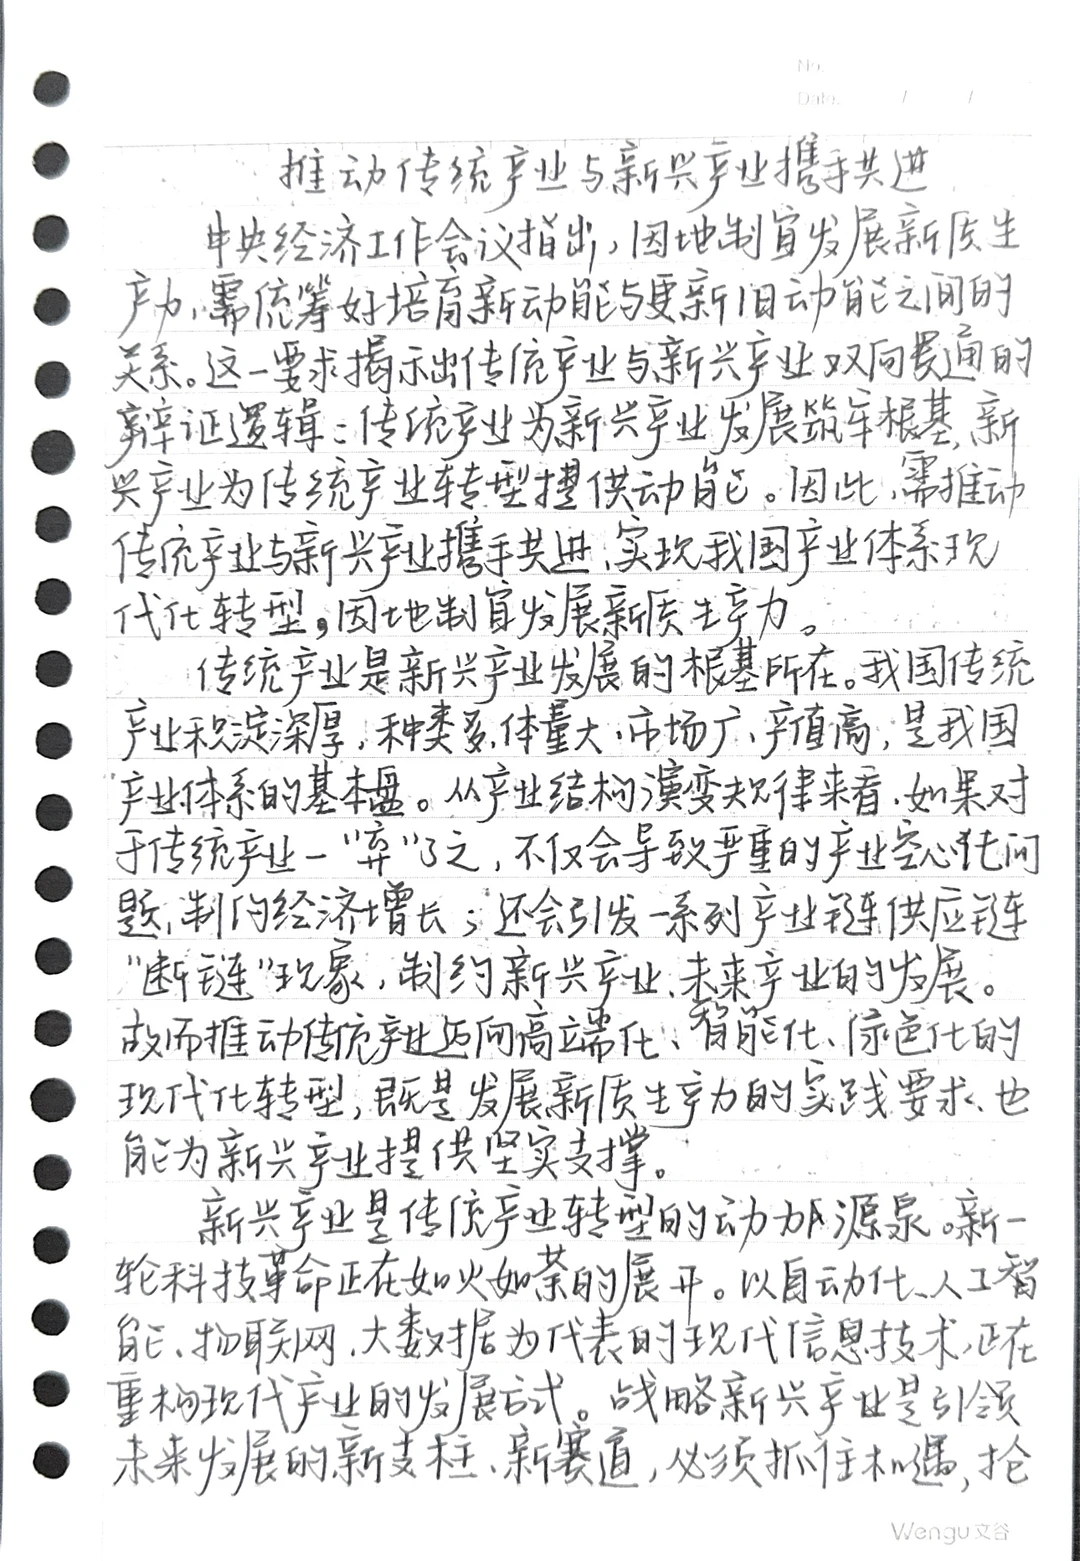 No.
Date. / /
推动传统产业与新兴产业携手共进
中央经济工作会议指出，因地制宜发展新质生
产力，需统筹好培育新动能与更新旧动能之间的
关系。这一要求揭示出传统产业与新兴产业双向贯通的
辩证逻辑：传统产业为新兴产业发展筑牢根基，新
兴产业为传统产业转型提供动能。因此，需推动
传统产业与新兴产业携手共进，实现我国产业体系现
代化转型，因地制宜发展新质生产力。
传统产业是新兴产业发展的根基所在。我国传统
产业积淀深厚，种类多、体量大、市场广、产值高，是我国
产业体系的基本盘。从产业结构演变规律来看，如果对
于传统产业一“弃”了之，不仅会导致严重的产业空心化问
题，制约经济增长；还会引发一系列产业链供应链
“断链”现象，制约新兴产业、未来产业的发展。
故而推动传统产业迈向高端化、智能化、绿色化的
现代化转型，既是发展新质生产力的实践要求，也
能为新兴产业提供坚实支撑。
新兴产业是传统产业转型的动力源泉。新一
轮科技革命正在如火如荼的展开。以自动化、人工智
能、物联网、大数据为代表的现代信息技术，正在
重构现代产业的发展方式。战略新兴产业是引领
未来发展的新支柱、新赛道，必须抓住机遇，抢
Wengu文谷